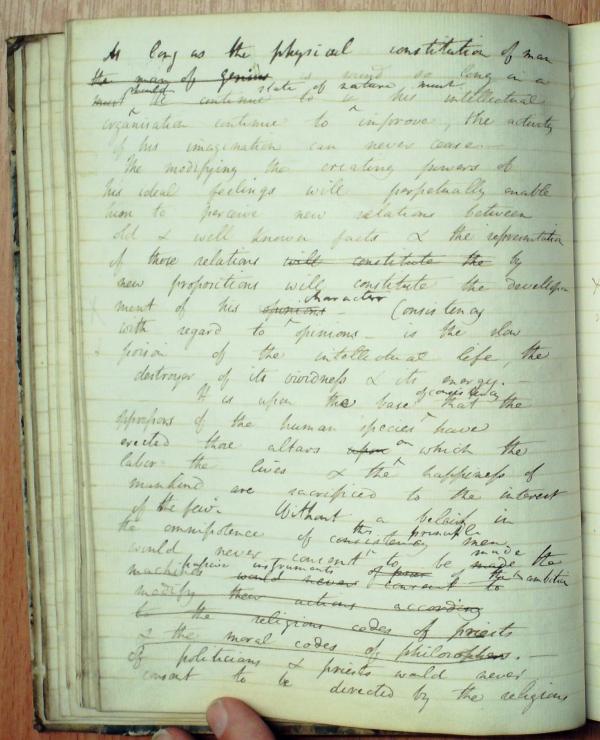 As long as the physical constitution of man
the man of genius is sound so long in a
must could be continue state of nature must
to be his intellectual
organisation continue to improve, the activity
of his imagination can never cease.
The modifying the creating powers of
his ideal feelings will perpetually enable
him to perceive new relations between
old & well known facts & the representation
of those relations will constitute the by
new propositions will constitute the develop
ment of his opinions character - Consistency
with regard to opinions - is the slow
poison of the intellectual life, the
destroyer of its vividness & its energy. -
It is upon the base of consistency that the
oppressors of the human species have
erected those altars upon on which the
labor the lives & the happiness of
mankind are sacrificed to the interest
of the few. Without a belief in
the omnipotence of consistency this principle men
would never consent to be made made the
machines passive instruments of the ambition
would never consent to
modify their actions according
to the religious codes of priests
& the moral codes of philosophers. -
of politicians & priests would never
consent to be directed by the religious